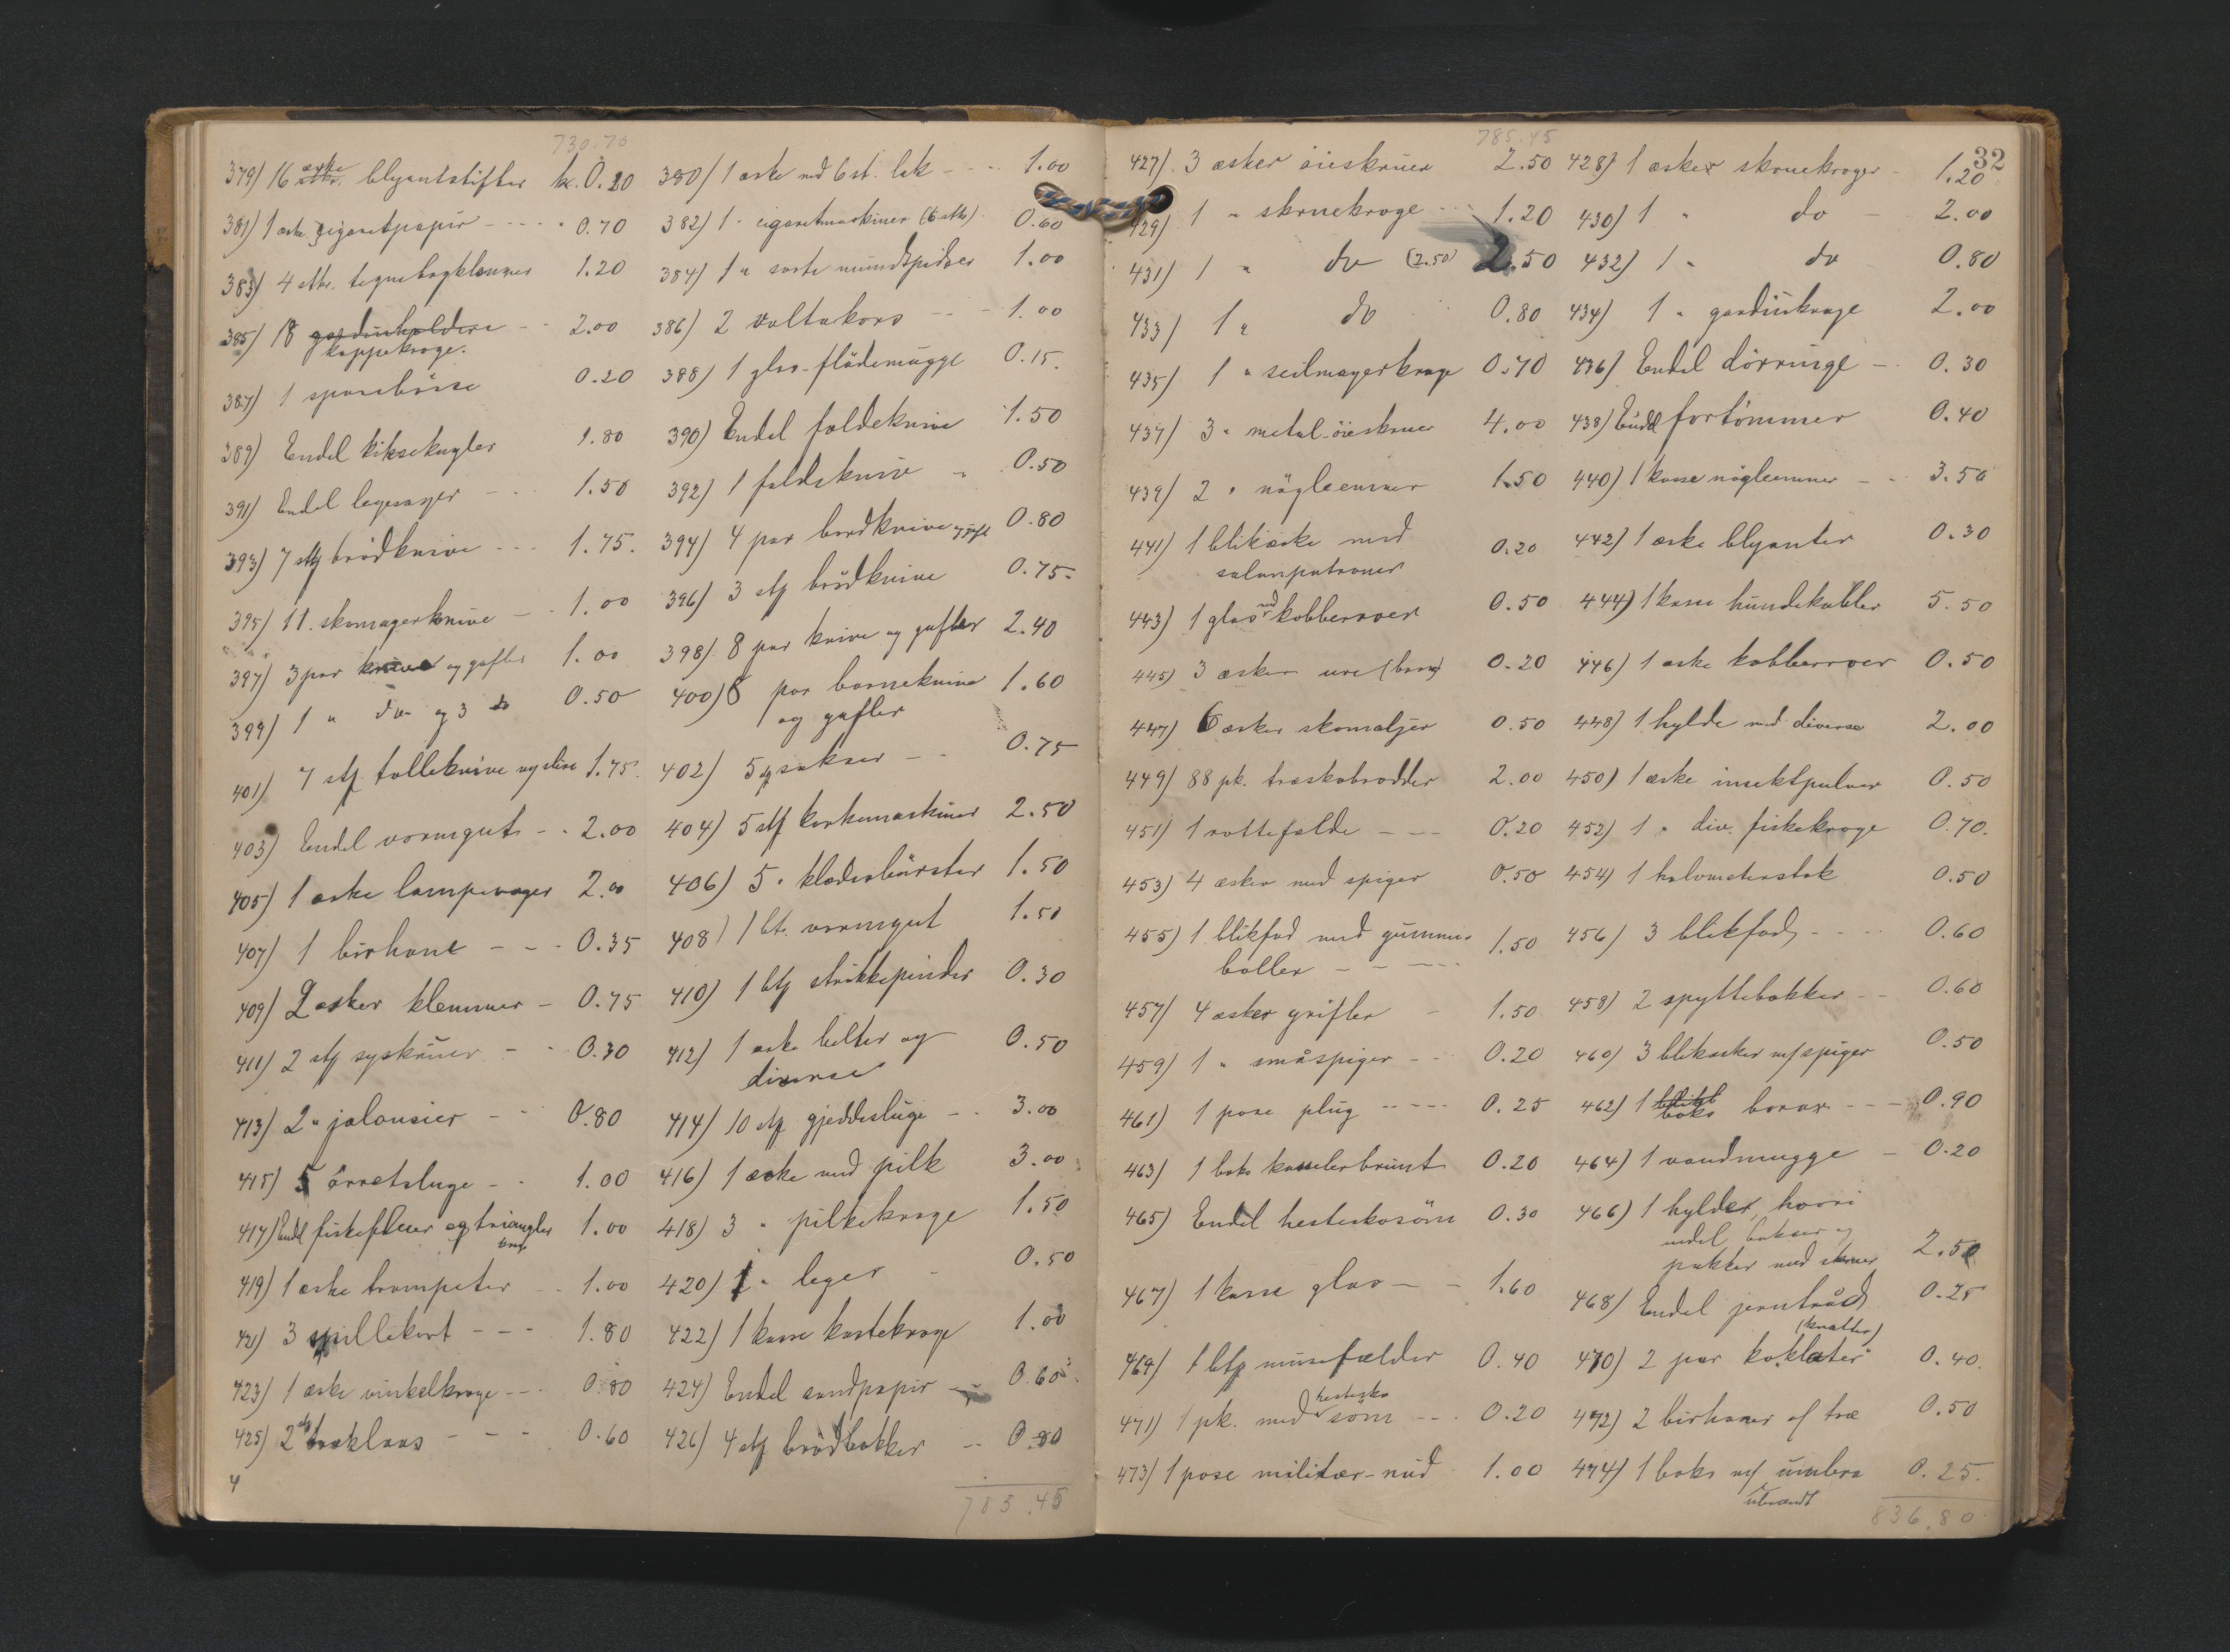 730.70
379) 16 æske blyantstifter kr. 0.20
380) 1 æske med 6 st. lak - - 1.00
381) 1 æske cigaretpapir - - - - 0.70
382) 1 " cigaretmaskiner (6 stk) 0.60
383) 4 stkr. tegnebogklemmer 1.20
384) 1 " sorte mundspidser 1.00
385) 18 gardinholdere - - 2.00
kappekroge.
386) 2 voltakors - - - 1.00
387) 1 sparebösse 0.20
388) 1 glas-flödemugge 0.15.
389) Endel kiksekugler 1.80
390) Endel foldeknive 1.50
391) Endel legesager - - 1.50
392) 1 foldekniv - 0.50
393) 7 stk brödknive - - - 1.75.
394) 4 par bordknive og gafl 0.80
395) 11. skomagerknive - - 1.00
396) 3 stk brödknive 0.75-
397) 3 par knive og gafler 1.00
398) 8 par knive og gafler 2.40
399) 1 " do og 3 do 0.50
400) 8 par barneknive 1.60
og gafler
401) 7 stk. tolleknive og slire 1.75.
402) 5 stk sakser - - 0.75
403) Endel vormgut - - 2.00
404) 5 stk korkemaskiner 2.50
405) 1 æske lampevæger 2.00
406) 5 " klædesbörster 1.50
407) 1 birhane - - - 0.35
408) 1 bt. vormgut 1.50
409) 2 æsker klemmer - 0.75
410) 1 bt strikkepinder 0.30
411) 2 stk syskruer - - 0.30
412) 1 æske belter og 0.50
diverse
413) 2 " jalousier - - 0.80
414) 10 stk gjeddesluge - - 3.00
415) 5 örretsluge - - 1.00
416) 1 æske med pilk 3.00
417) Endel fiskefluer og triangler 1.00
418) 3 " pilkekroge 1.50
419) 1 æske trompeter - - 1.00
420) 1 " leger - 0.50
421) 3 spillekort - - - 1.80
422) 1 kasse kastekroge 1.00
423) 1 æske vinkelkroge - - - 0.80
424) Endel sandpapir - - 0.60
425) 2 stk træklaas - - - 0.60
426) 4 stk brödbakker - - 0.80
4
785.45
32
785.45
427) 3 æsker öieskruer 2.50
428) 1 æsker skruekroger - 1.20
429) 1 " skruekroge - - - 1.20
430) 1 " do - 2.00
431) 1 " do (2.50) 2.50
432) 1 " do 0.80
433) 1 " do 0.80
434) 1 " gardinkroge 2.00
435) 1 " seilmagerkroge 0.70
436) Endel dörringe - - 0.30
437) 3 " metal-öieskruer 4.00
438) Endel fortömmer 0.40
439) 2 " nögleemner 1.50
440) 1 kasse nögleemner - - 3.50
441) 1 blikæske med 0.20
salonpatroner
442) 1 æske blyanter 0.30
443) 1 glas med kobberroer 0.50
444) 1 kasse hundekobler 5.50
445) 3 æsker ure (barn) 0.20
446) 1 æske kobberroer 0.50
447) 6 æsker skomaljer 0.50
448) 1 hylde med diverse 2.00
449) 88 pk. træskobrodder 2.00
450) 1 æske insektpulver 0.50
451) 1 rottefælde - - - 0.20
452) 1 " div. fiskekroge 0.70.
453) 4 æsker med spiger 0.50
454) 1 halvmeterstok 0.50
455) 1 blikfad med gummi- 1.50
baller - - - -
456) 3 blikfad - - - - 0.60
457) 4 æsker grifler - 1.50
458) 2 spyttebakker - - 0.60
459) 1 " småspiger - - 0.20
460) 3 blikæsker m/ spiger 0.50
461) 1 pose plug - - - - 0.25
462) 1 boks borax - - - 0.90
463) 1 boks kasselerbrunt 0.20
464) 1 vandmugge - 0.20
465) Endel hesteskosöm 0.30
466) 1 hylder, hvori
endel bokser og
pakker med skruer 2.50
467) 1 kasse glas - - 1.60
468) Endel jerntråd 0.25
(knatter)
469) 1 bt musefælder 0.40
470) 2 par koklater 0.40.
471) 1 pk. med hestesko söm - - - 0.20
472) 2 birhaner af træ 0.50
473) 1 pose militær-nud 1.00
474) 1 boks m/ umbra 0.25.
ubrændt
836.80